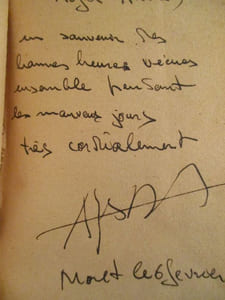 en souvenir des
bonnes heures vécues
ensemble pendant
les mauvais jours
très cordialement
Moret le 6 fevrier